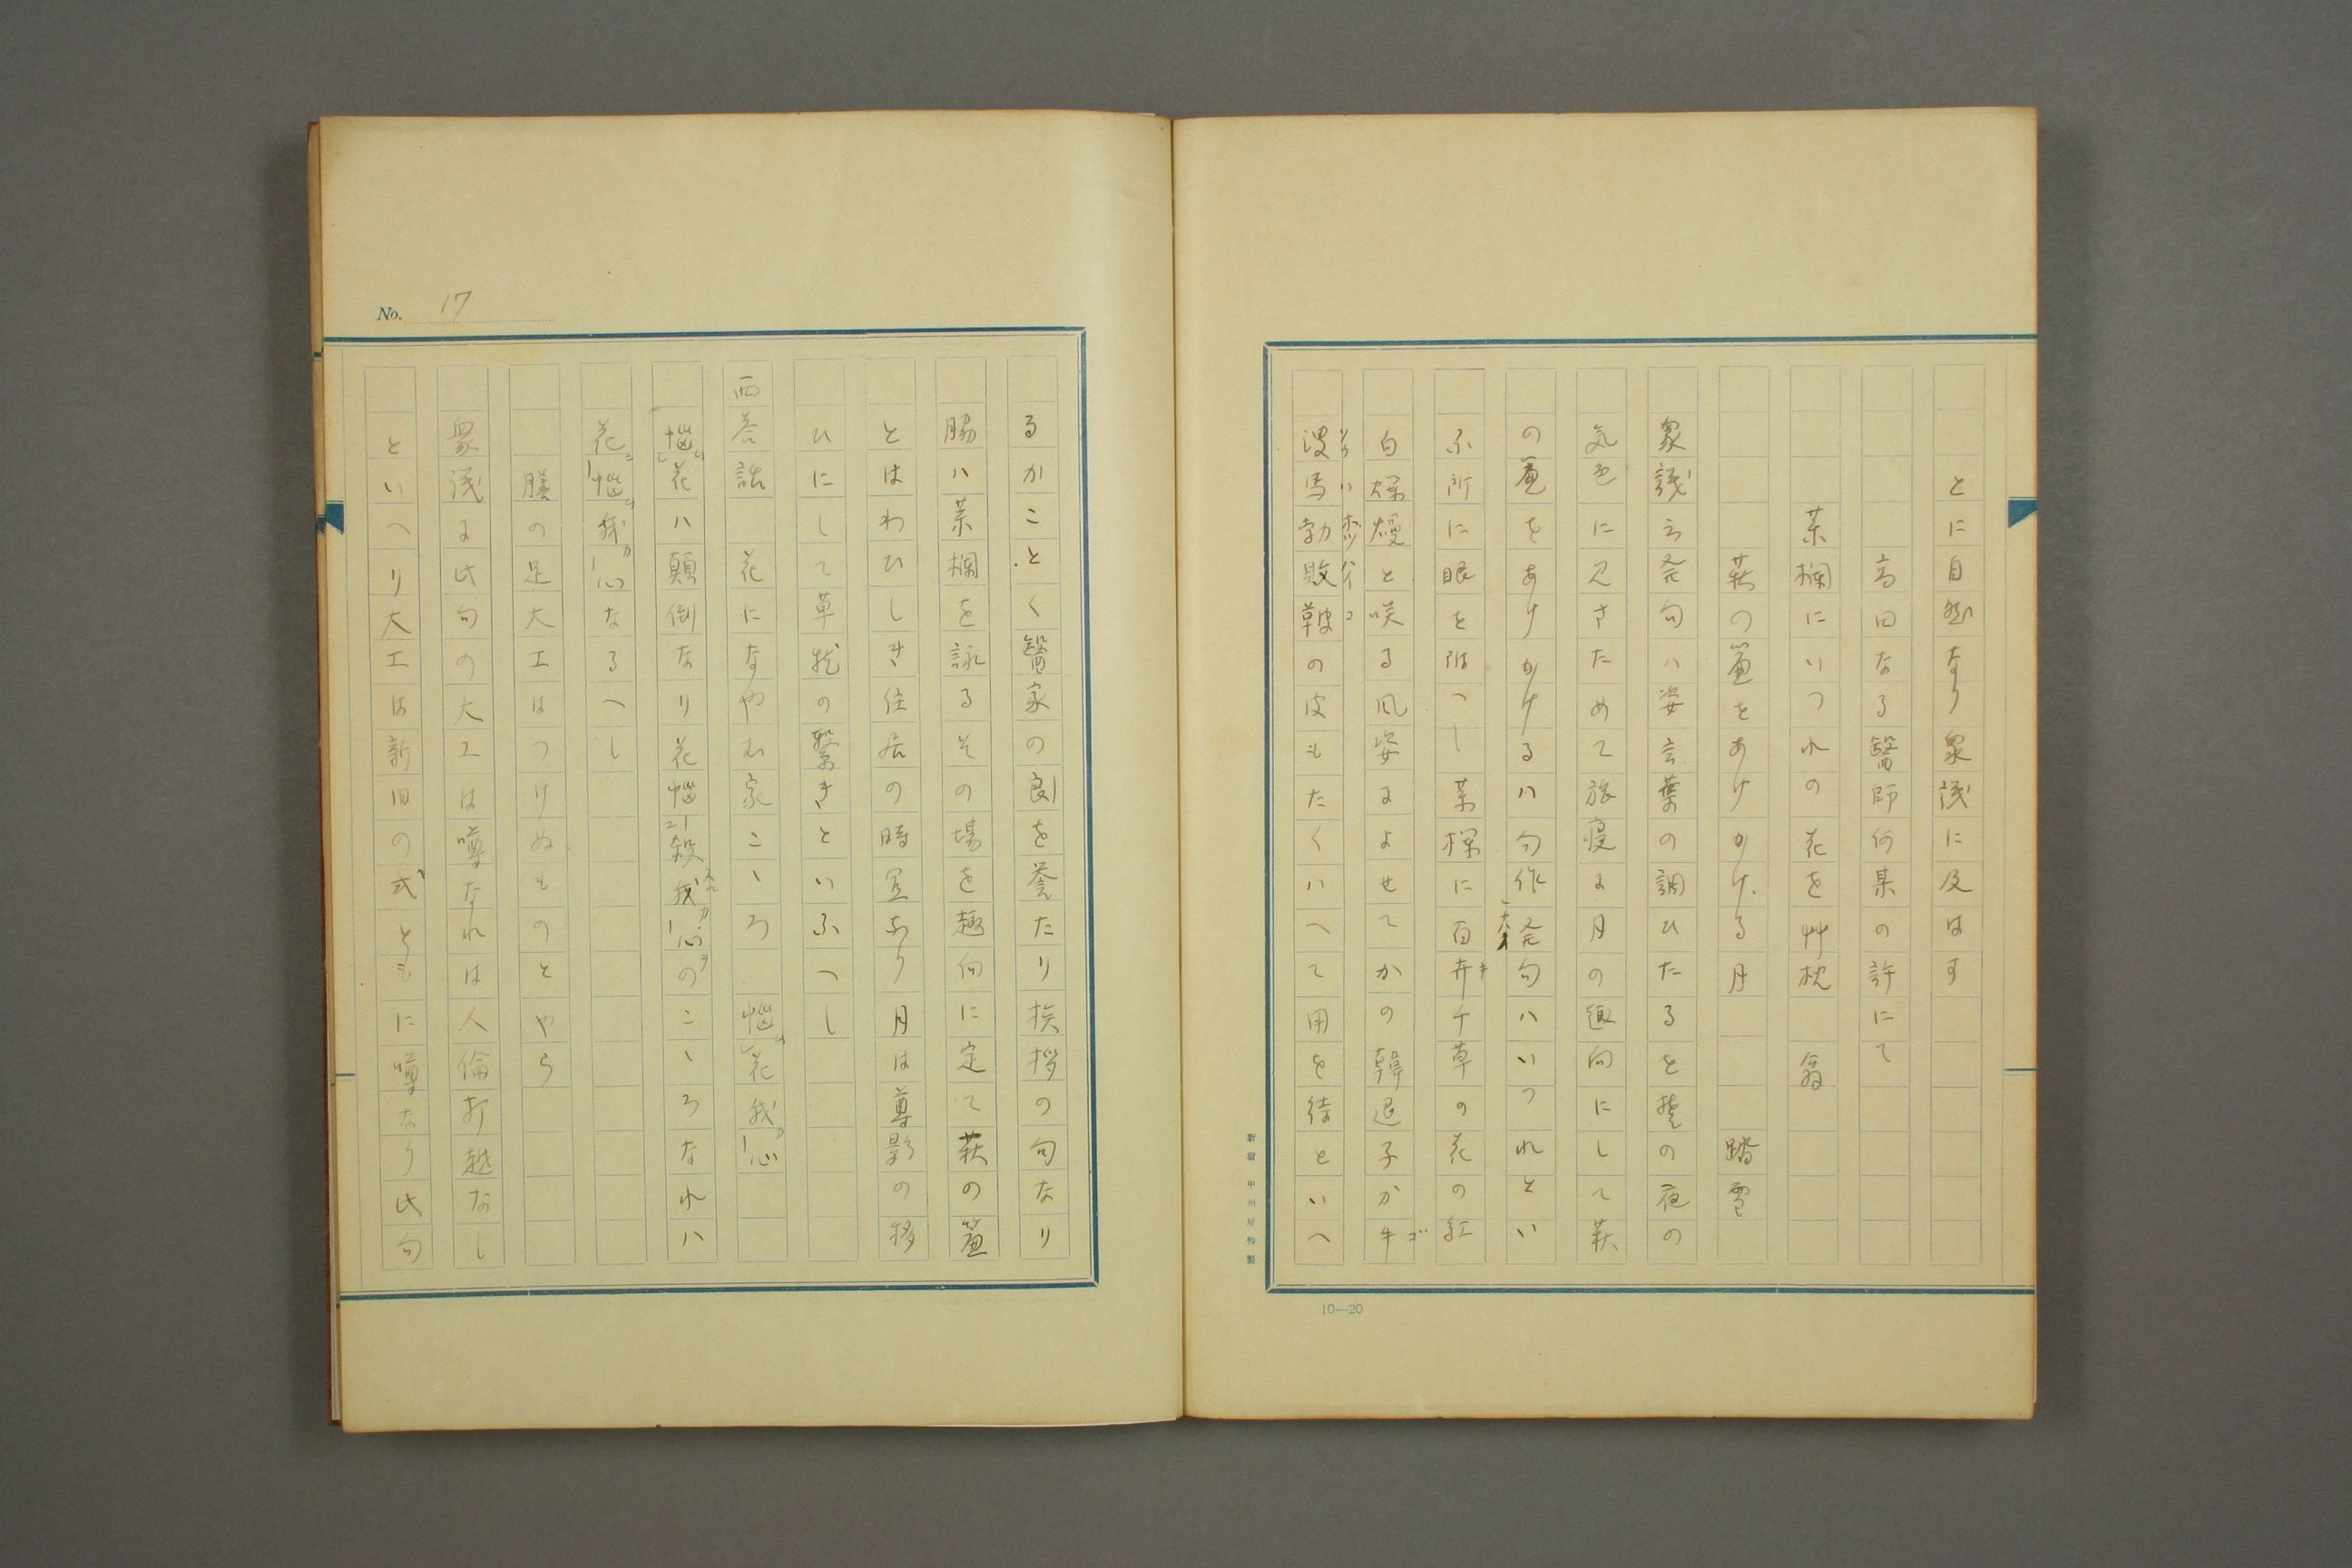 とに自然なり衆議に及はす
高田なる醫師何某の許にて
薬欄にいつれの花を艸枕　翁
萩の簾をあけかける月　踏雪
衆議云発句ハ姿言葉の調ひたるを其の夜の
気色に見さためて旅寝よ月の趣向にして萩
の簾をあけかけるハ句作発句ハいつれとい
ふ所に眼を附へし薬欄に百卉千草の花の紅
白爛熳と咲る風姿によせてかの韓退子か牛
溲馬勃敗鞁の皮もたくハへて用を待といへ
るかことく醫家の良を誉たり挨拶の句なり
脇ハ薬欄を詠るその場を趣向に定て萩の簾
とはわひしき住居の時宜あり月は尊影の拶
ひにして草枕の繋きといふへし
西花になやむ家こゝろ　悩花我心
悩花ハ顛倒なり花悩殺我心のこゝろなれハ
花悩我心なるへし
膳の足大工はつけぬものとやら
衆議よ此句の大工は噂なれは人倫打越なし
といへり大工は新旧の式ともに噂なり此句
No. 17
10—20